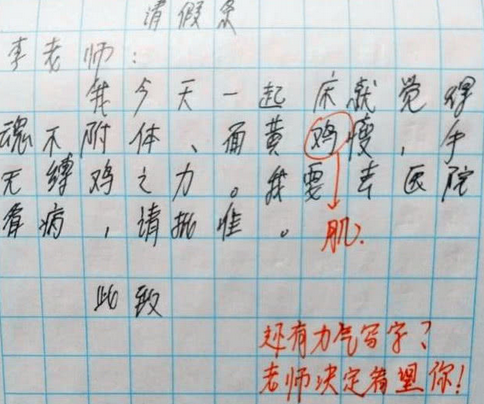 请假条
李老师：
我今天一起床就觉得
魂不附体、面黄鸡瘦，手
无缚鸡之力。我要去医院
看病，请批准。
肌？
此致
还有力气写字？
老师决定看望你！